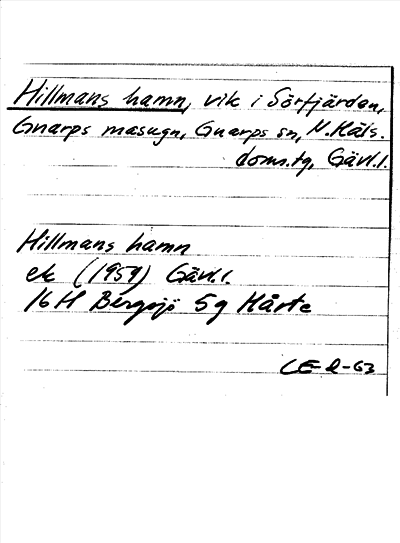 Hillmans hamn, vik i Sörfjärden,
Gnarps masugn, Gnarps sn, N. Häls.
doms.tg, Gävl.l.
Hillmans hamn
ek (1959) Gävl.l.
16H Bergsjö 5g Hårte